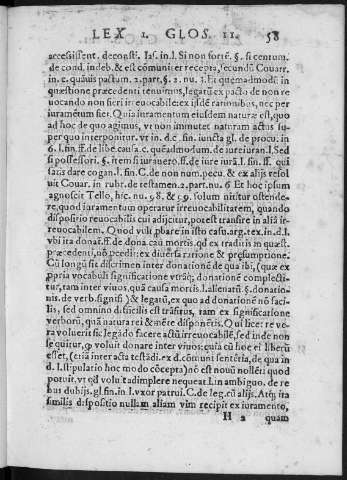 LEX 1. GLOS. II. 58
accesissent. de consti. Ias. in l. Si non fortē. §. si centum.
de cond. indeb. & est cōmuniter recepta, secundū Couarr.
in. c. quāuis pactum. 2. part. §. 2. nu. 3. Et quemadmodū in
quæstione præcedenti tenuimus, legatū ex pacto de non re
uocando non fieri irreuocabile: ex ijsdē rationibus, nec per
iuramētum fiet. Quia iuramentum eiusdem naturæ est, quo
ad hoc de quo agimus, vt non immutet naturam actus su-
per quo interponitur. vt in. d. c. fin. iuncta gl. de procu. in
6. l. fin. ff. de libe. causa. c. quēadmodum. de iureiuran. l. Sed
si possessori. §. item si iurauero. ff. de iure iurā. l. fin. ff. qui
satis dare cogan. l. fin. C. de non num. pecu. & ex alijs resol
uit Couar. in rubr. de testamen. 2. part. nu. 6 Et hoc ipsum
agnoscit Tello, hic. nu. 98. & 159. solum nititur ostende-
re, quod iuramentum operatur irreuocabilitatem, quando
dispositio reuocabilis cui adijcitur, potest transire in aliā ir-
reuocabilem. Quod vult pbare in isto casu. arg. tex. in. d. l.
vbi ita donat. ff. de dona. cau mortis. qd ex traditis in quæst.
præcedenti, nō pcedit: ex diuersa ratione & præsumptione.
Cū longū sit discrimen inter donationē de qua ibi, (quæ ex
ppria vocabuli significatione vtrāq; donationē complecti-
tur, tam inter viuos, quā causa mortis. l. alienatū §. donatio-
nis. de verb. signifi.) & legatū, ex quo ad donationē nō faci-
lis, sed omnino difficilis est trāsitus, tam ex significatione
verborū, quā natura rei & mēte disponētis. Qui licet re ve-
ra voluerit sic legādo facere actū irreuocabilē, sed inde non
sequitur, qp voluit donare inter viuos; quia cū hoc ei liberū
esset, (etiā inter acta testādi. ex d. cōmuni sentētia, de qua in
d. l. stipulatio hoc modo cōcepta) nō est noui nolleti quod
potuit. vt qd volut tadimplere nequeat. l. in ambiguo. de re
bus dubijs. gl. fin. in l. vxor patrui. C. de leg. cū alijs. Atq; ita
similis dispositio nullam aliam vim recipit ex iuramento,
H 2 quam